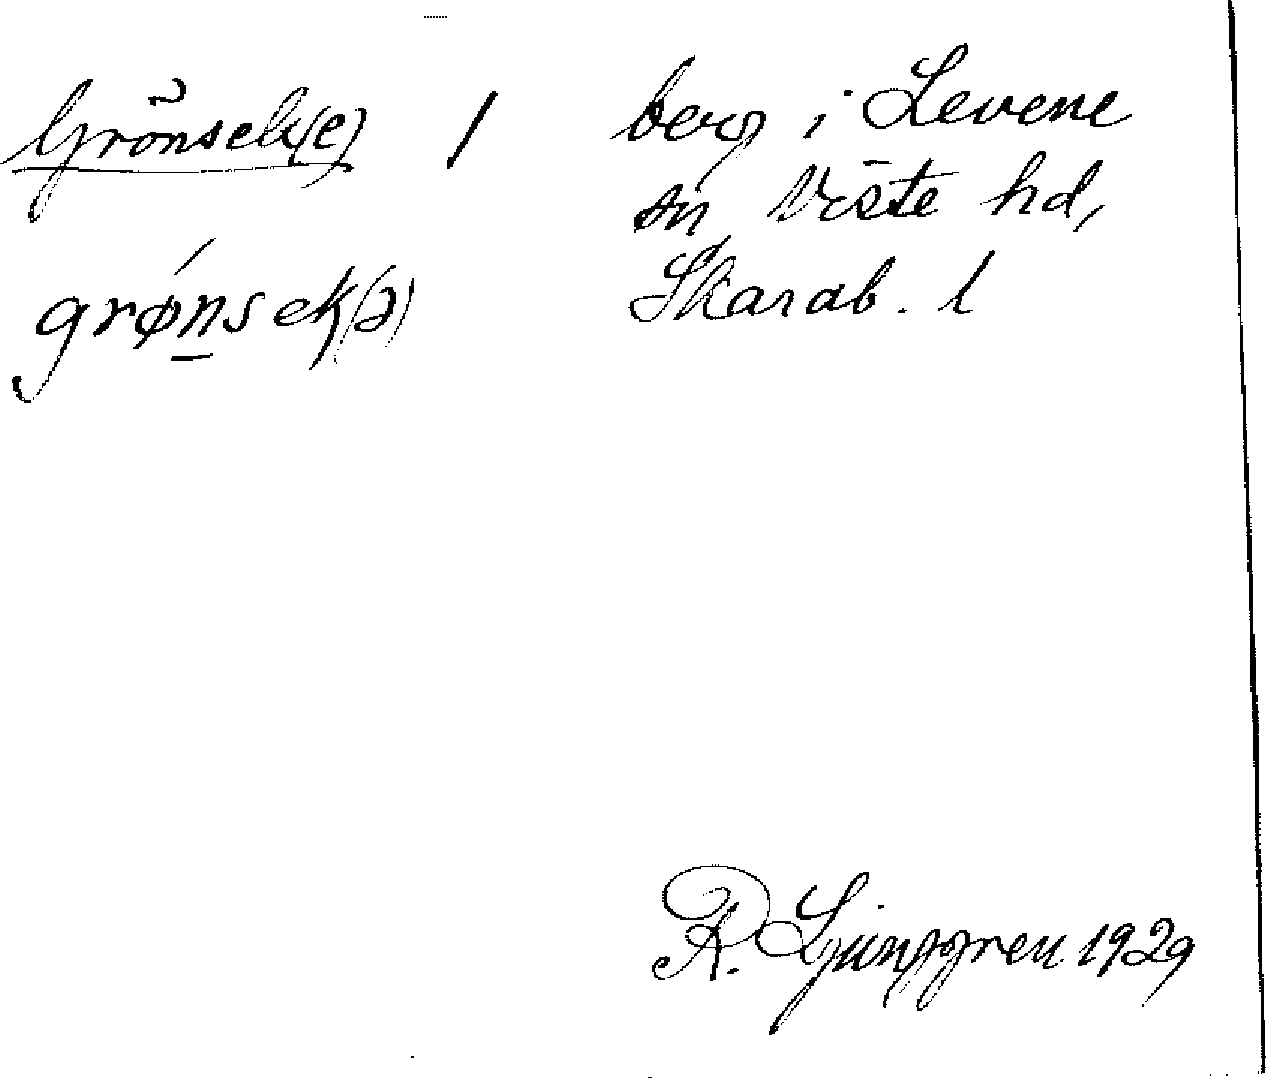 Grönsek(e) /
grønsek(ə)
berg i Levene
sn Viste hd,
Skarab. l
R. Ljunggren 1929